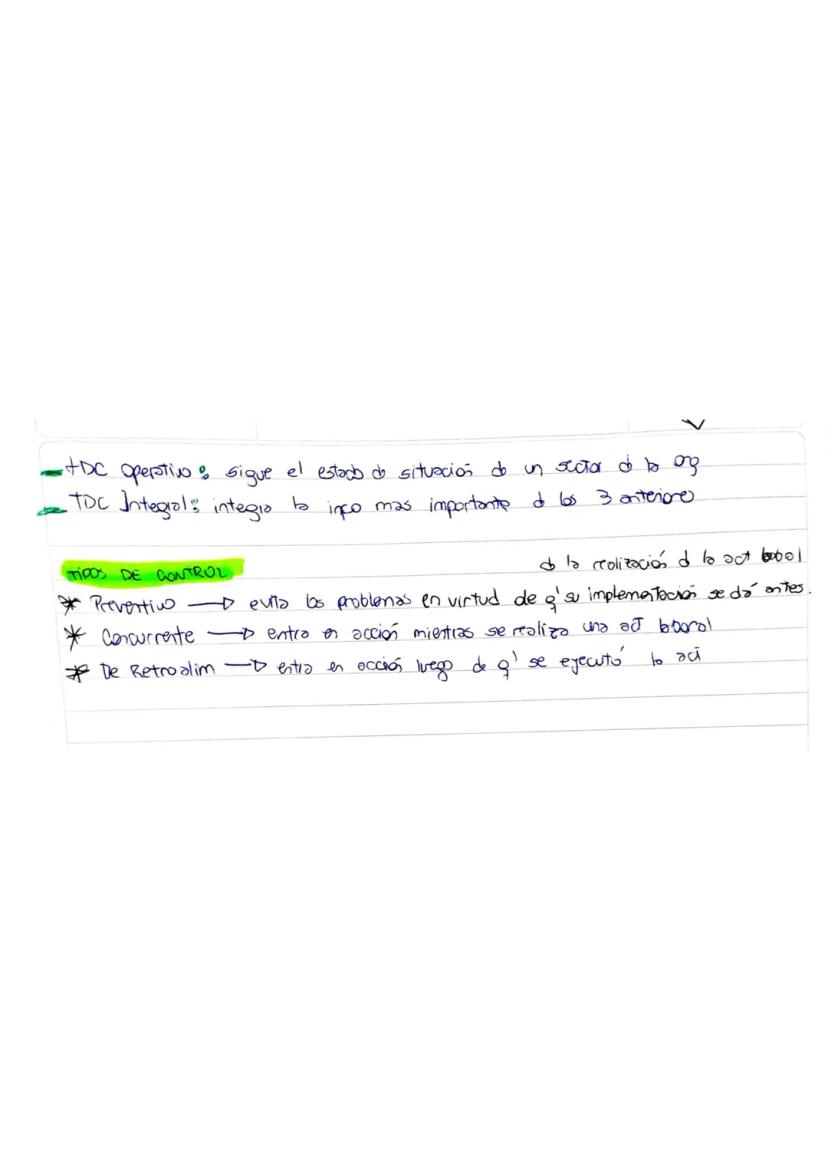 - TDC Operativo: sigue el estado d situación d un sector d la org
- TDC Integral: integra la info mas importante d los 3 anteriores
TIPOS DE CONTROL
d la realización d la act laboral
* Preventivo → evita los problemas en virtud de q' su implementación se dá antes.
* Concurrente → entra en acción mientras se realiza una act laboral
* De Retroalim → entra en acción luego de q' se ejecutó la act